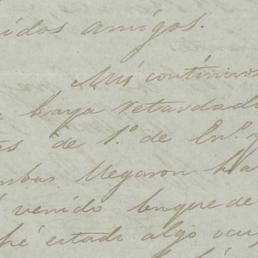 idos amigos.
Mis contínuos
haya retardado
de 1.º de En.º
mbas llegaron ha
venido
hé estado algo ocu